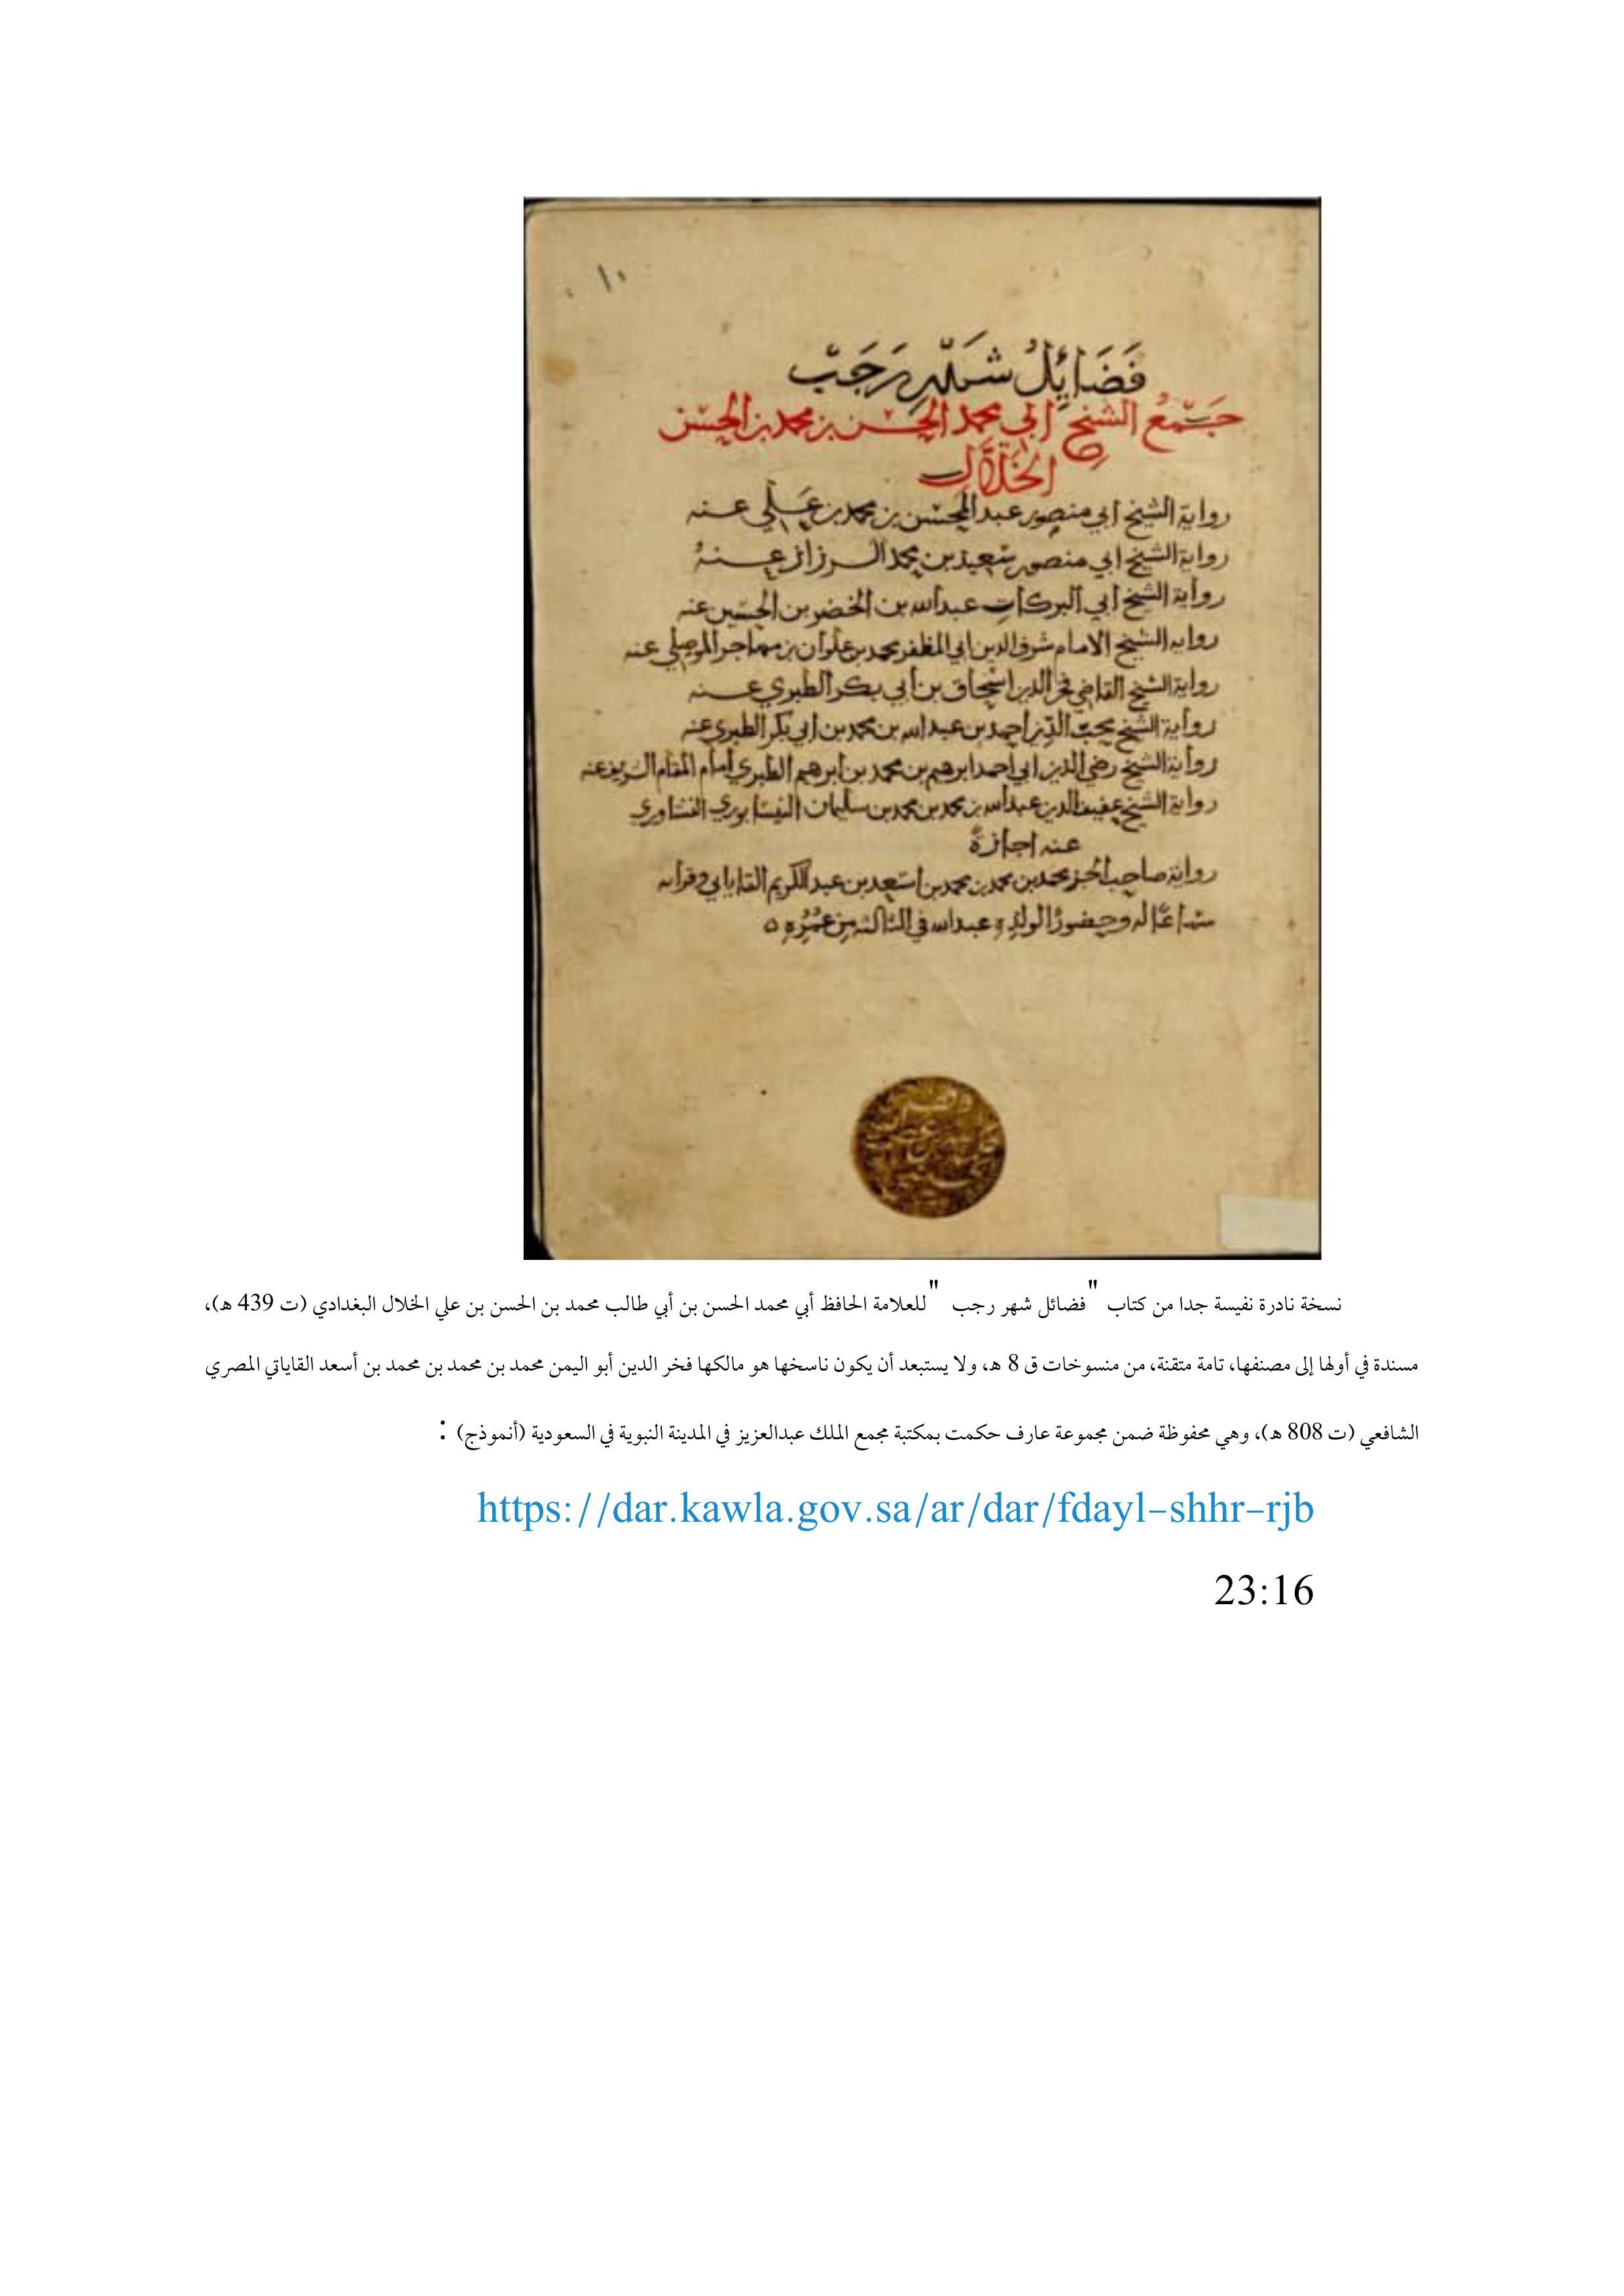 ١٠
فَضَايِلُ شَهْرِ رَجَبْ
جَمْعُ الشيخ ابي محمد الحسن بن محمد بن الحسن
الخلّال
رواية الشيخ ابي منصور عبد المحسن بن محمد بن علي عنه
رواية الشيخ ابي منصور سعيد بن محمد الرزاز عنهُ
رواية الشيخ أبي البركات عبدالله بن الخضر بن الحسين عنه
رواية الشيخ الامام شرف الدين ابي المظفر محمد بن علوان بن مهاجر الموصلي عنه
رواية الشيخ القاضي فخر الدين اسحاق بن أبي بكر الطبري عنه
رواية الشيخ محب الدين احمد بن عبدالله بن محمد بن ابي بكر الطبري عنه
رواية الشيخ رضي الدين ابي احمد ابرهيم بن محمد بن ابرهيم الطبري امام المقام الشريف عنه
رواية الشيخ عفيف الدين عبدالله بن محمد بن محمد بن سليمان النيسابوري النشاوري
عنه اجازةً
رواية صاحب الجزء محمد بن محمد بن محمد بن اسعد بن عبد الكريم القاياتي وقرأه
سماعًا له وحضورًا لولده عبدالله في الثالثة من عُمُرِهِ ه
نسخة نادرة نفيسة جدا من كتاب "فضائل شهر رجب " للعلامة الحافظ أبي محمد الحسن بن أبي طالب محمد بن الحسن بن علي الخلال البغدادي (ت 439 ه)،
مسندة في أولها إلى مصنفها، تامة متقنة، من منسوخات ق 8 ه، ولا يستبعد أن يكون ناسخها هو مالكها فخر الدين أبو اليمن محمد بن محمد بن محمد بن أسعد القاياتي المصري
الشافعي (ت 808 ه)، وهي محفوظة ضمن مجموعة عارف حكمت بمكتبة مجمع الملك عبدالعزيز في المدينة النبوية في السعودية (أنموذج) :
https://dar.kawla.gov.sa/ar/dar/fdayl-shhr-rjb
23:16